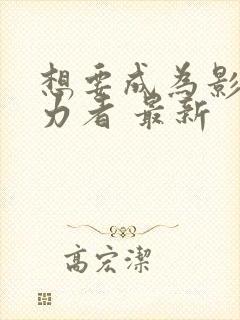 想要成為影
力者 最新
高宏潔